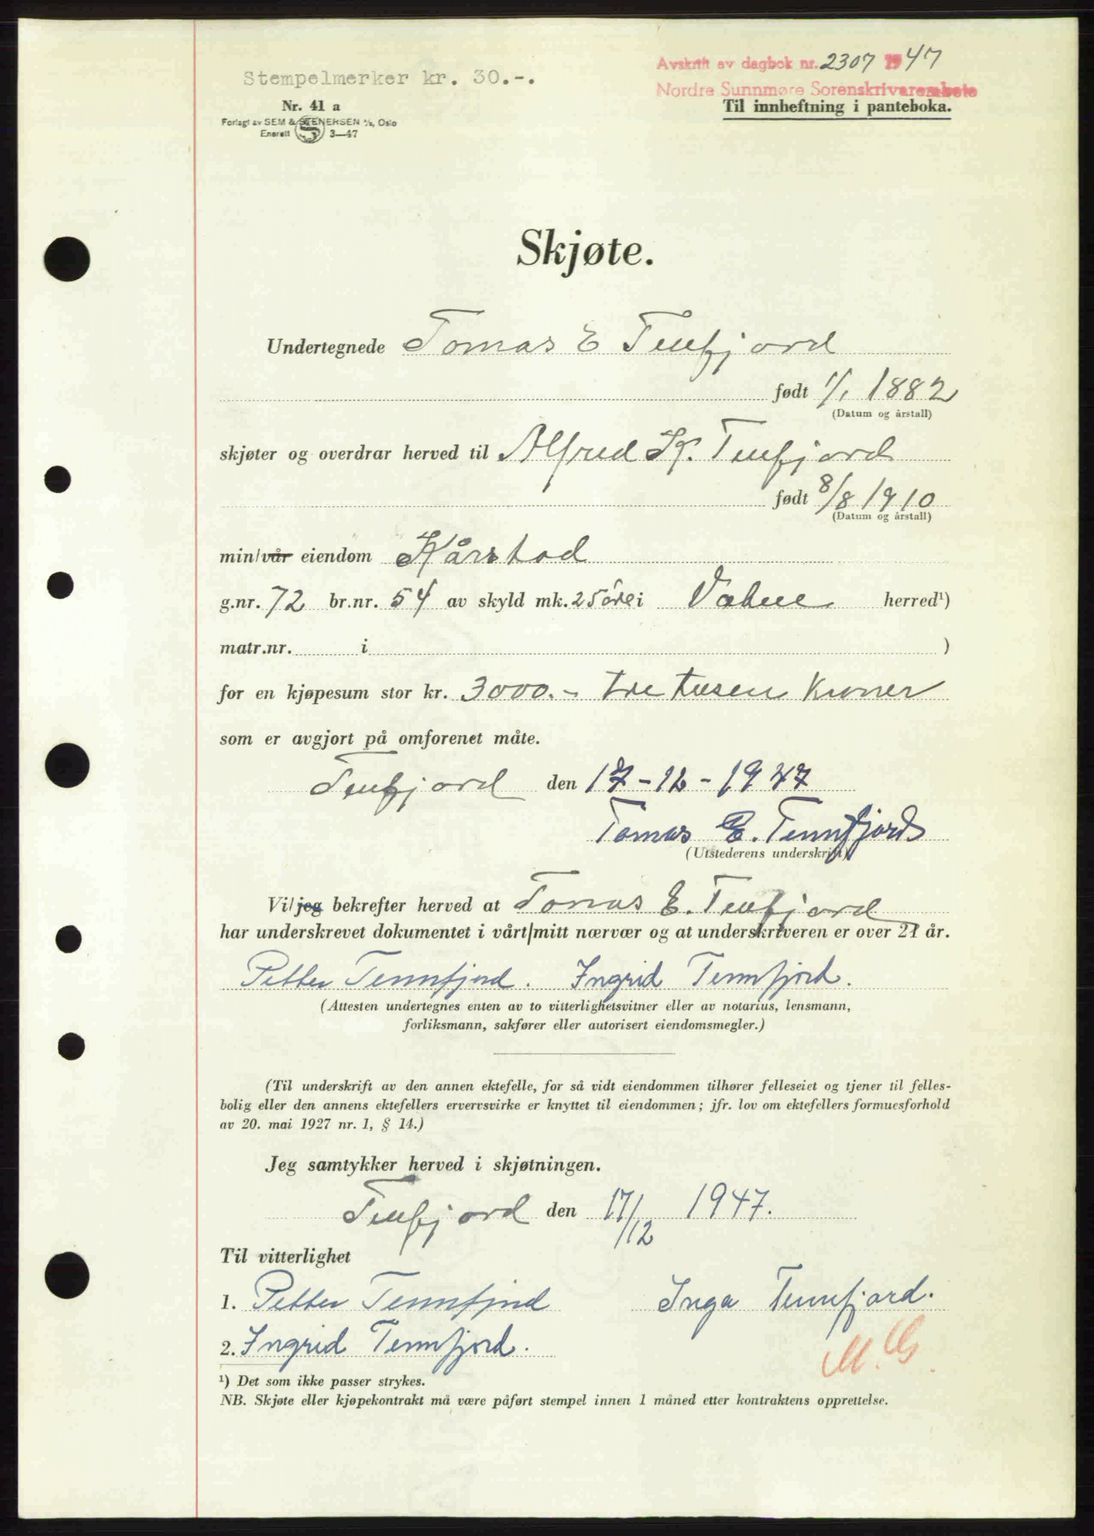 Stempelmerker kr. 30.-.
Avskrift av dagbok nr. 2307 1947
Nordre Sunnmøre Sorenskriverembete
Nr. 41 a
Til innheftning i panteboka.
Forlagt av SEM & STENERSEN A/S, Oslo
Enerett S 3—47
Skjøte.
Undertegnede Tomas E Tenfjord
født 1/1 1882
(Datum og årstall)
skjøter og overdrar herved til Alfred K. Tenfjord
født 8/8 1910
(Datum og årstall)
min/vår eiendom Kårstad
g.nr. 72 br.nr. 54 av skyld mk. 25 øre i Vatne herred¹)
matr.nr. i )
for en kjøpesum stor kr. 3000.- tre tusen kroner
som er avgjort på omforenet måte.
Tenfjord den 17-12-1947
Tomas E. Tennfjord
(Utstederens underskrift)
Vi/jeg bekrefter herved at Tomas E. Tenfjord
har underskrevet dokumentet i vårt/mitt nærvær og at underskriveren er over 21 år.
Petter Tennfjord. Ingrid Tennfjord.
(Attesten undertegnes enten av to vitterlighetsvitner eller av notarius, lensmann,
forliksmann, sakfører eller autorisert eiendomsmegler.)
(Til underskrift av den annen ektefelle, for så vidt eiendommen tilhører felleseiet og tjener til felles-
bolig eller den annens ektefellers ervervsvirke er knyttet til eiendommen; jfr. lov om ektefellers formuesforhold
av 20. mai 1927 nr. 1, § 14.)
Jeg samtykker herved i skjøtningen.
Tenfjord den 17/12 1947.
Til vitterlighet
1. Petter Tennfjord Inga Tennfjord.
2. Ingrid Tennfjord.
M.G.
¹) Det som ikke passer strykes.
NB. Skjøte eller kjøpekontrakt må være påført stempel innen 1 måned etter kontraktens opprettelse.